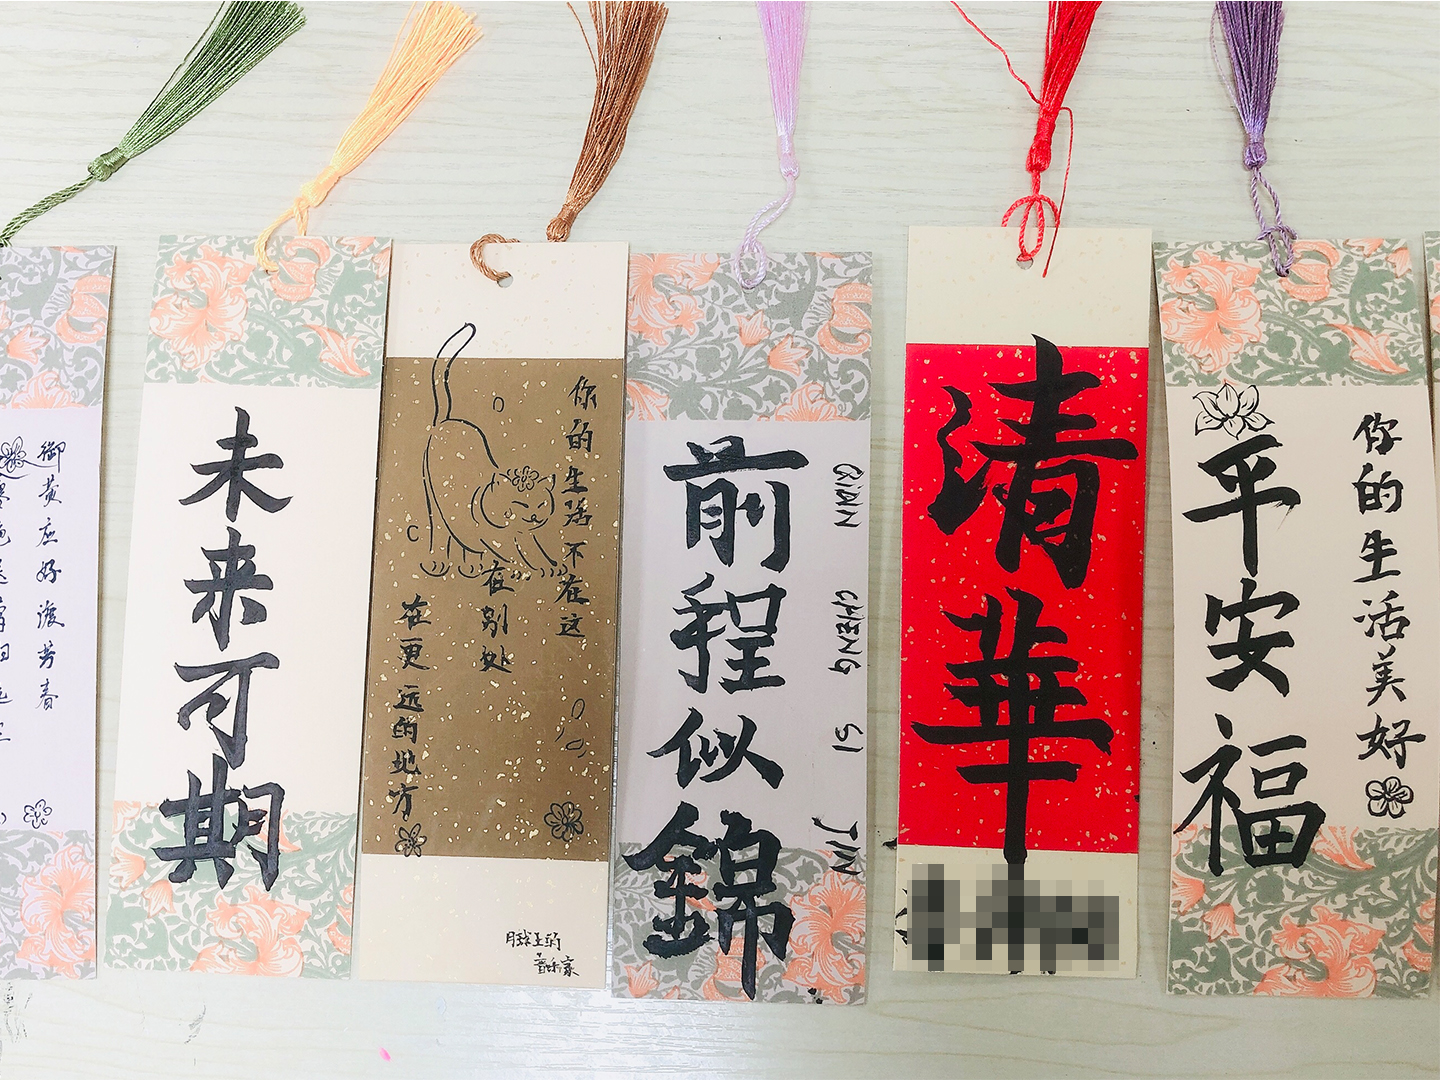 御黄 好渡芳春
未来可期
你的生活不在这
在别处
在更远的地方
QIAN CHENG SI JIN
前程似錦
清華
你的生活美好
平安福